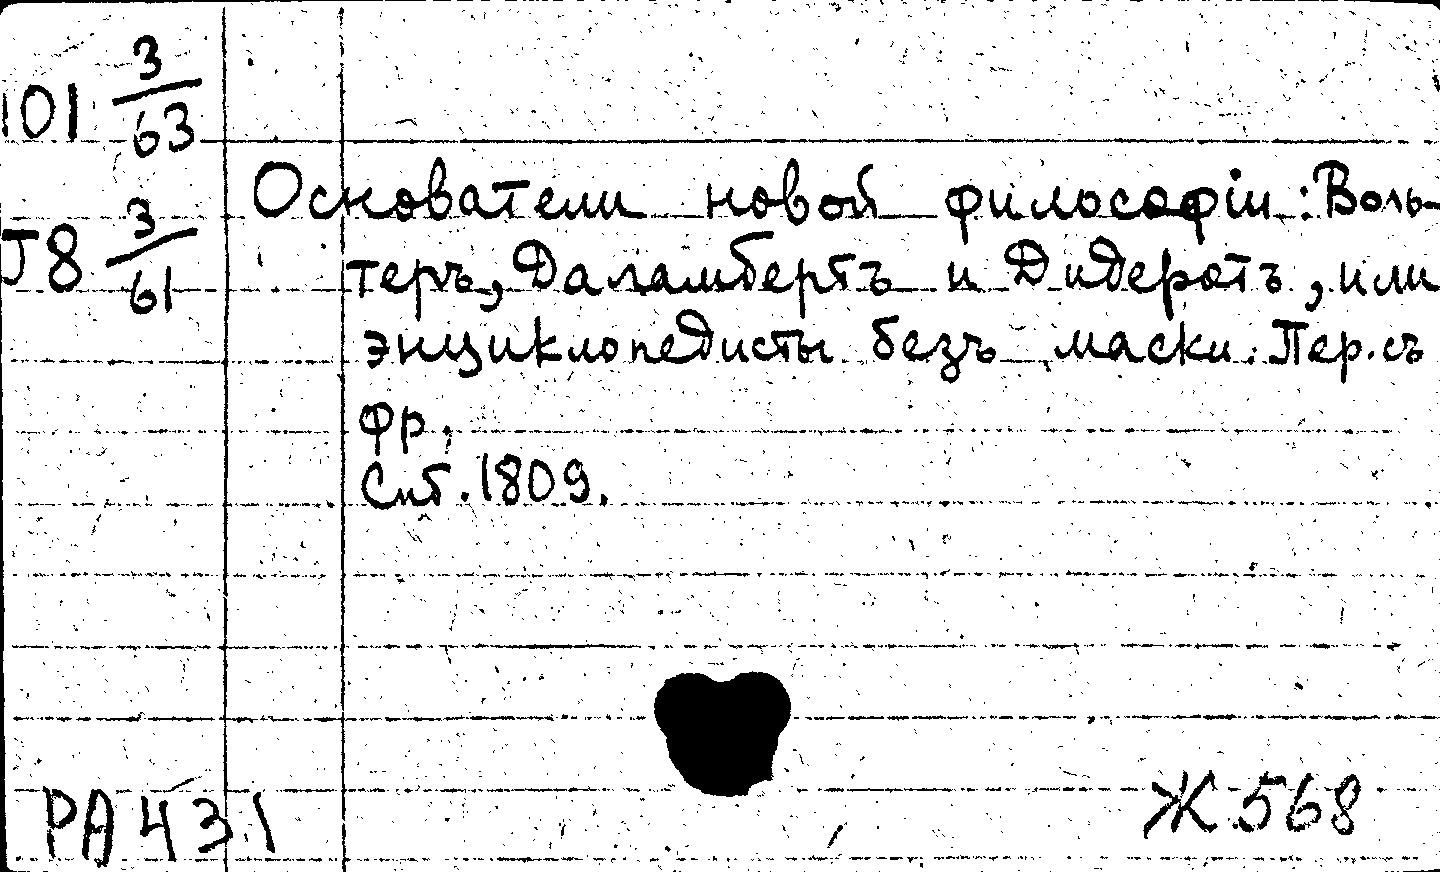 101 3/63
Основатели новой философіи: Воль-
J8 3/61
теръ, Даламбертъ и Дидеротъ, или
энциклопедисты безъ маски. Пер. съ
фр.
Спб. 1809.
РА 431
Ж 568